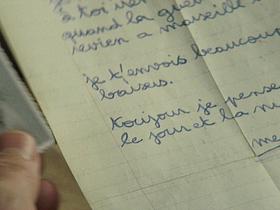 à toi
quand la gue
revien a marseille
je t'envois beaucoup
baisers.
toujour je pense
le jour et la nu
me